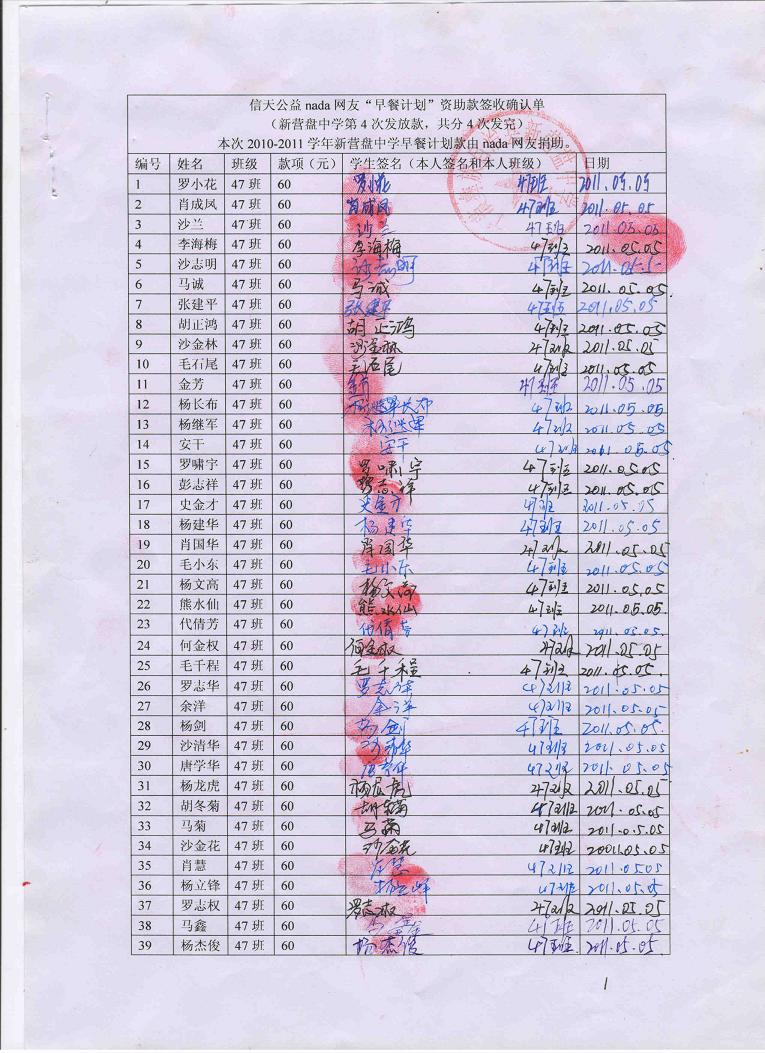 信天公益 nada 网友“早餐计划”资助款签收确认单
（新营盘中学第 4 次发放款，共分 4 次发完）
本次 2010-2011 学年新营盘中学早餐计划款由 nada 网友捐助。
编号 姓名 班级 款项（元） 学生签名（本人签名和本人班级） 日期
1 罗小花 47 班 60 罗小花 47班 2011.05.05
2 肖成凤 47 班 60 肖成凤 47班 2011.05.05
3 沙兰 47 班 60 沙兰 47班 2011.05.05
4 李海梅 47 班 60 李海梅 47班 2011.05.05
5 沙志明 47 班 60 沙志明 47班 2011.05.5
6 马诚 47 班 60 马诚 47班 2011.05.05
7 张建平 47 班 60 张建平 47班 2011.05.05
8 胡正鸿 47 班 60 胡正鸿 47班 2011.05.05
9 沙金林 47 班 60 沙金林 47班 2011.05.05
10 毛石尾 47 班 60 毛石尾 47班 2011.05.05
11 金芳 47 班 60 金芳 47班 2011.05.05
12 杨长布 47 班 60 47班 2011.05.05
13 杨继军 47 班 60 杨继军 47班 2011.05.05
14 安干 47 班 60 安干 47班 2011.05.05
15 罗啸宇 47 班 60 罗啸宇 47班 2011.05.05
16 彭志祥 47 班 60 彭志祥 47班 2011.05.05
17 史金才 47 班 60 史金才 47班 2011.05.05
18 杨建华 47 班 60 杨建华 47班 2011.05.05
19 肖国华 47 班 60 肖国华 47班 2011.05.05
20 毛小东 47 班 60 毛小东 47班 2011.05.05
21 杨文高 47 班 60 杨文高 47班 2011.05.05
22 熊水仙 47 班 60 熊水仙 47班 2011.05.05
23 代倩芳 47 班 60 代倩芳 47班 2011.05.05
24 何金权 47 班 60 何金权 47班 2011.05.05
25 毛千程 47 班 60 毛千程 47班 2011.05.05
26 罗志华 47 班 60 罗志华 47班 2011.05.05
27 余洋 47 班 60 余洋 47班 2011.05.05
28 杨剑 47 班 60 杨剑 47班 2011.05.05
29 沙清华 47 班 60 沙清华 47班 2011.05.05
30 唐学华 47 班 60 唐学华 47班 2011.05.05
31 杨龙虎 47 班 60 杨龙虎 47班 2011.05.05
32 胡冬菊 47 班 60 胡冬菊 47班 2011.05.05
33 马菊 47 班 60 马菊 47班 2011.05.05
34 沙金花 47 班 60 沙金花 47班 20011.05.05
35 肖慧 47 班 60 肖慧 47班 2011.0505
36 杨立锋 47 班 60 杨立锋 47班 2011.05.05
37 罗志权 47 班 60 罗志权 47班 2011.05.05
38 马鑫 47 班 60 马鑫 47班 2011.05.05
39 杨杰俊 47 班 60 杨杰俊 47班 2011.05.05
1